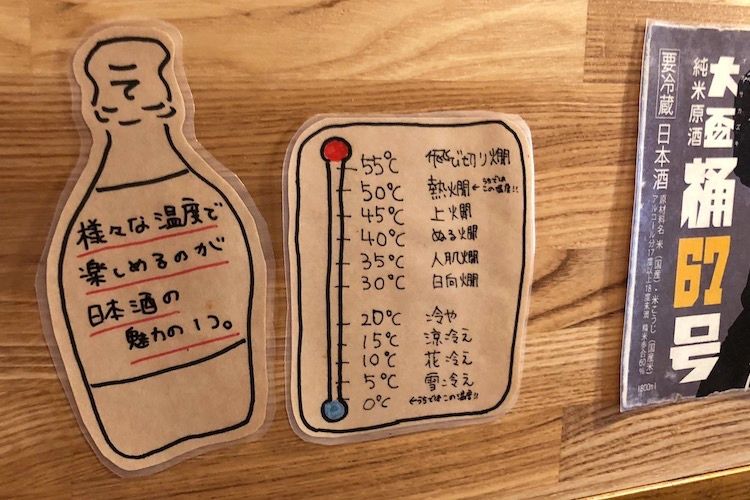 こて
様々な温度で
楽しめるのが
日本酒の
魅力の1つ。
55℃ 飛び切り燗
50℃ 熱燗 ←うちではこの温度!!
45℃ 上燗
40℃ ぬる燗
35℃ 人肌燗
30℃ 日向燗
20℃ 冷や
15℃ 涼冷え
10℃ 花冷え
5℃ 雪冷え
0℃ ←うちではこの温度!!
要冷蔵
日本酒
純米原酒
大盃
桶67号
原材料名 米(国産)・米こうじ(国産米)
アルコール分17度以上18度未満 精米歩合60%
1800ml